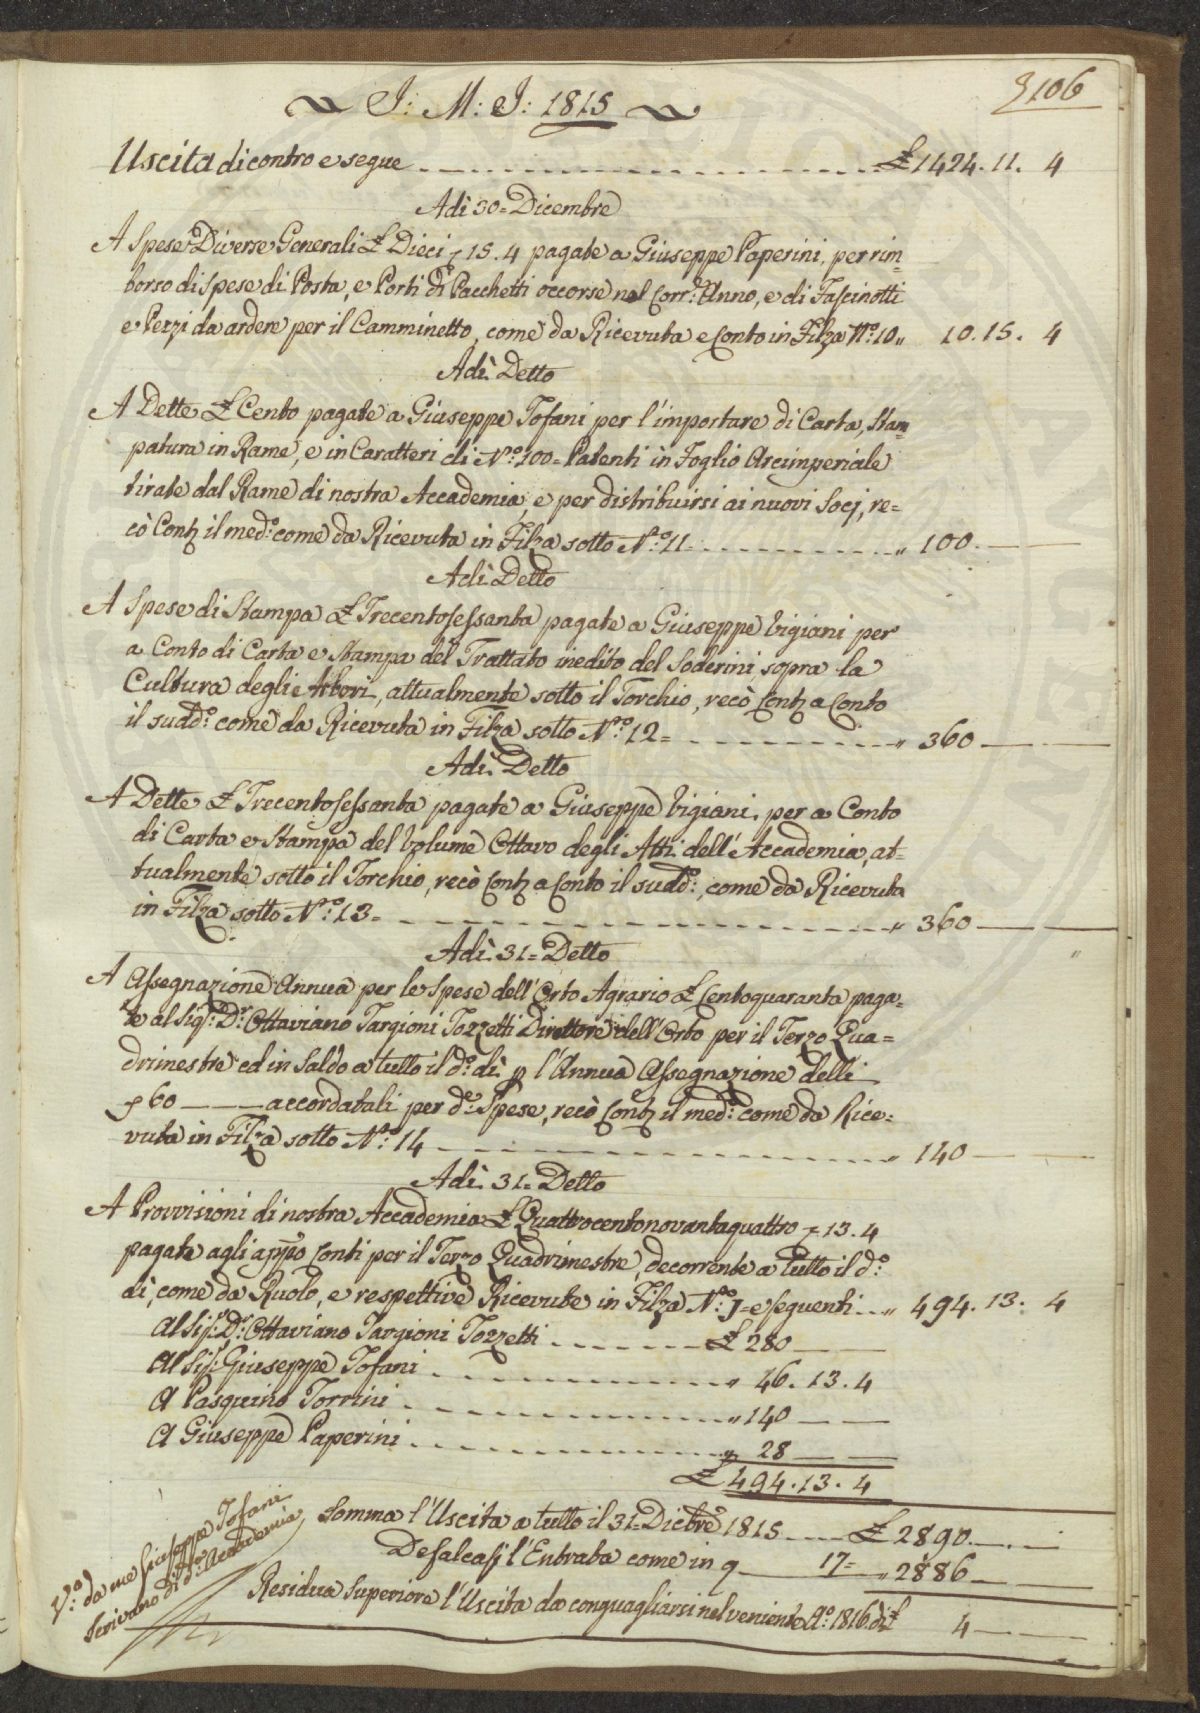 106
J: M: J: 1815
Uscita di contro e segue £ 1424. 11. 4
Adì 30= Dicembre
A Spese Diverse Generali £ Dieci 15. 4 pagate a Giuseppe Paperini, per rim=
borso di Spese di Posta, e Porti di Pacchetti occorse nel Corr:e Anno, e di Fascinotti
e Pezzi da ardere per il Camminetto, come da Ricevuta e Conto in Filza N:o 10 „ 10. 15. 4
Adì Detto
A Dette £ Cento pagate a Giuseppe Tofani per l'importare di Carta, Stam=
patura in Rame, e in Caratteri di N:o 100= Patenti in Foglio Arcimperiale
tirate dal Rame di nostra Accademia, e per distribuirsi ai nuovi Socj, re=
cò Conti il med:o come da Ricevuta in Filza sotto N:o 11 „ 100. —
Adì Detto
A Spese di Stampa £ Trecentosessanta pagate a Giuseppe Vigiani per
a Conto di Carta e Stampa del Trattato inedito del Soderini sopra la
Cultura degli Arbori, attualmente sotto il Torchio, recò Conti a Conto
il sudd:o come da Ricevuta in Filza sotto N:o 12= „ 360 —
Adì Detto
A Dette £ Trecentosessanta pagate a Giuseppe Vigiani, per a Conto
di Carta e Stampa del Volume Ottavo degli Atti dell'Accademia, at=
tualmente sotto il Torchio, recò Conti a Conto il sudd:o, come da Ricevuta
in Filza sotto N:o 13= „ 360 —
Adì 31= Detto
A Assegnazione Annua per le Spese dell'Orto Agrario £ Centoquaranta paga=
te al Sig:r D:r Ottaviano Targioni Tozzetti Direttore dell'Orto per il Terzo Qua=
drimestre ed in Saldo a tutto il d:o dì p l'Annua Assegnazione delli
60 — accordatali per d:e Spese, recò Conti il med:o come da Rice=
vuta in Filza sotto N:o 14 „ 140 —
Adì 31= Detto
A Provvisioni di nostra Accademia £ Quattrocentonovantaquattro 13. 4
pagate agli app:o Conti per il Terzo Quadrimestre, decorrente a tutto il d:o
dì, come da Ruolo, e respettive Ricevute in Filza N:o J= e seguenti „ 494. 13. 4
Al Sig:r D:r Ottaviano Targioni Tozzetti £ 280 —
Al Sig:r Giuseppe Tofani „ 46. 13. 4
A Pasquino Torrini „ 140 —
A Giuseppe Paperini „ 28 —
£ 494. 13. 4
Somma l'Uscita a tutto il 31= Dicbre 1815 £ 2890. —
Defalcasi l'Entrata come in 17= „ 2886 —
Residua Superiore l'Uscita da conguagliarsi nel veniente A:o 1816 di £ 4 —
V:o da me Giuseppe Tofani
Scrivano di d:a Accademia